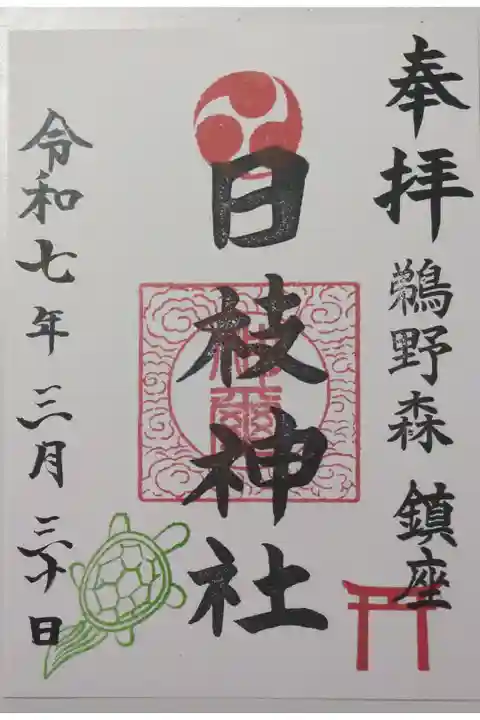 奉拝
鵜野森 鎮座
日枝神社
令和七年 三月 三十日